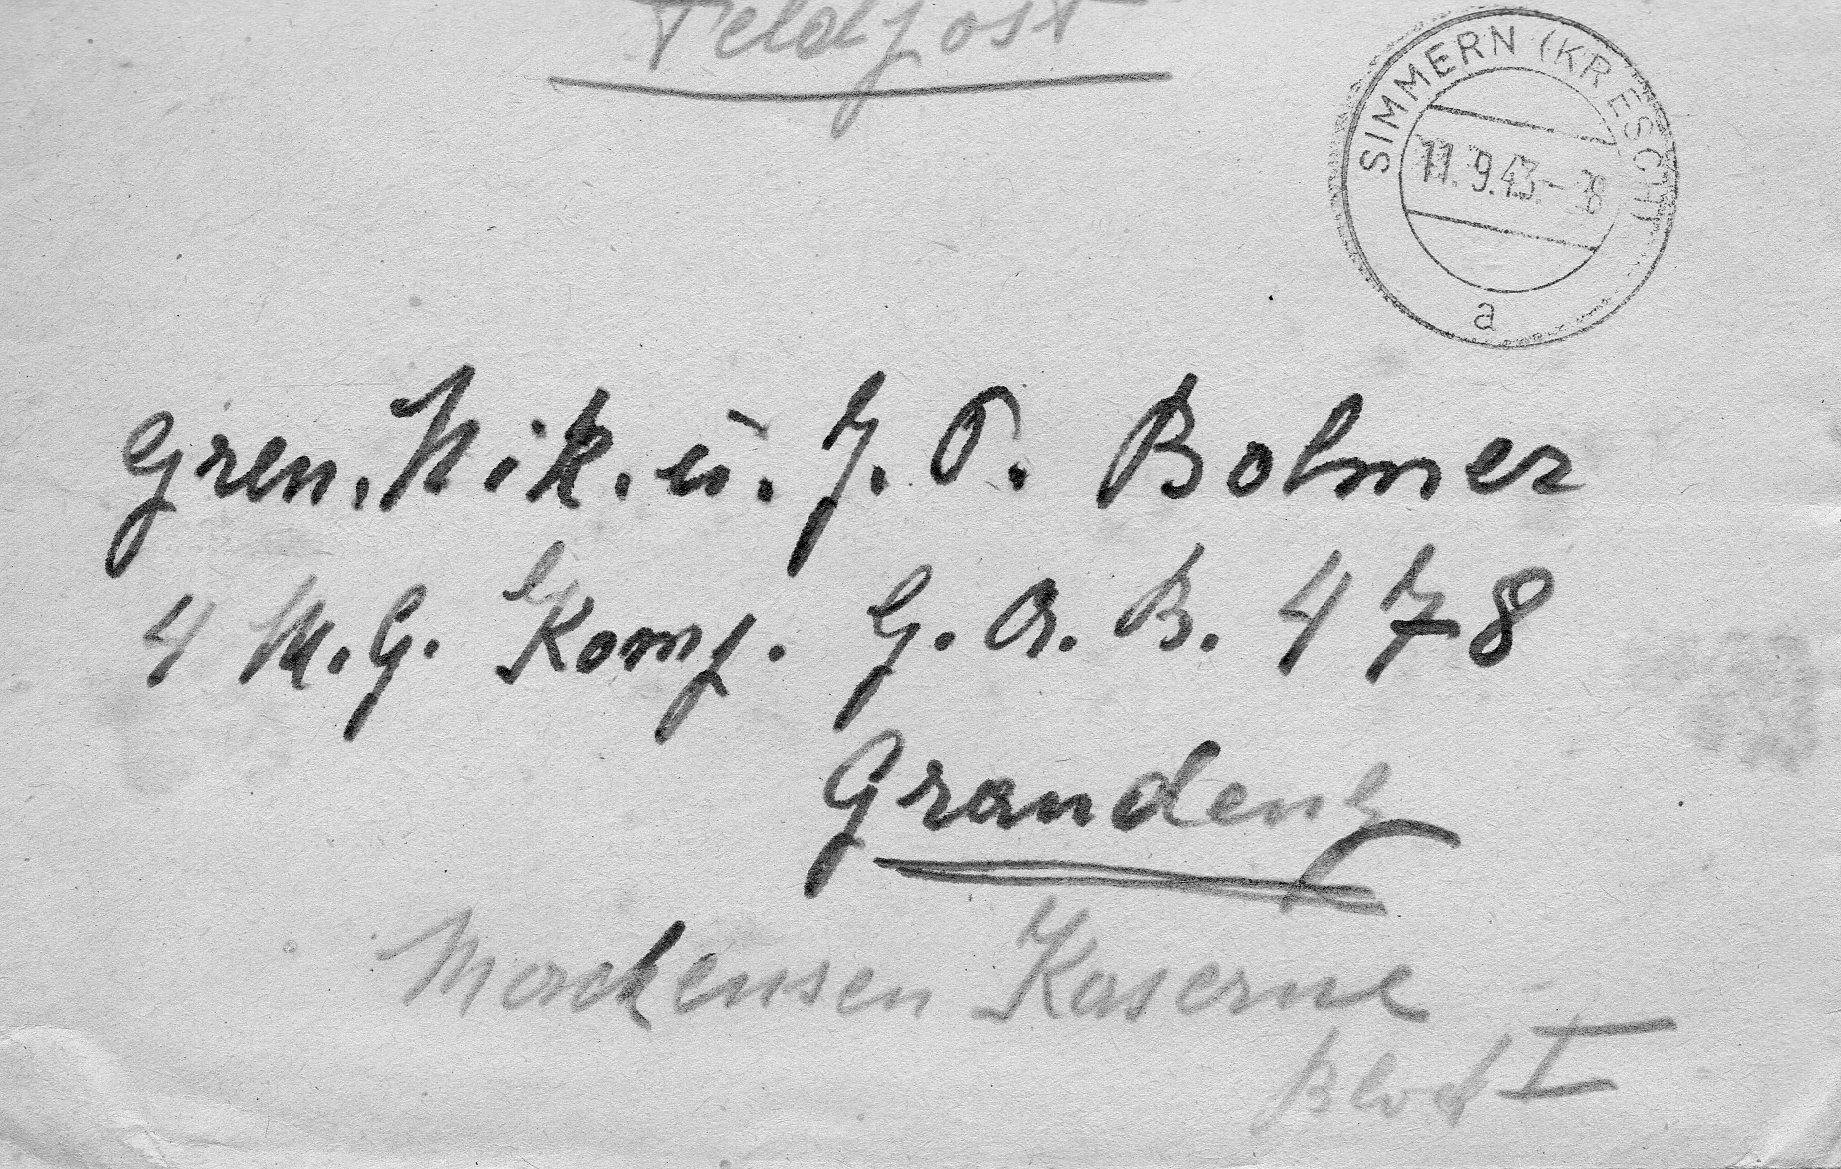 Feldpost
SIMMERN (KR ESCH)
11.9.43-18
a
Gren. Nik. ū. J. P. Bolmer
4 M.G. Komp. G. A. B. 478
Graudenz
Mackensen Kaserne
Block I